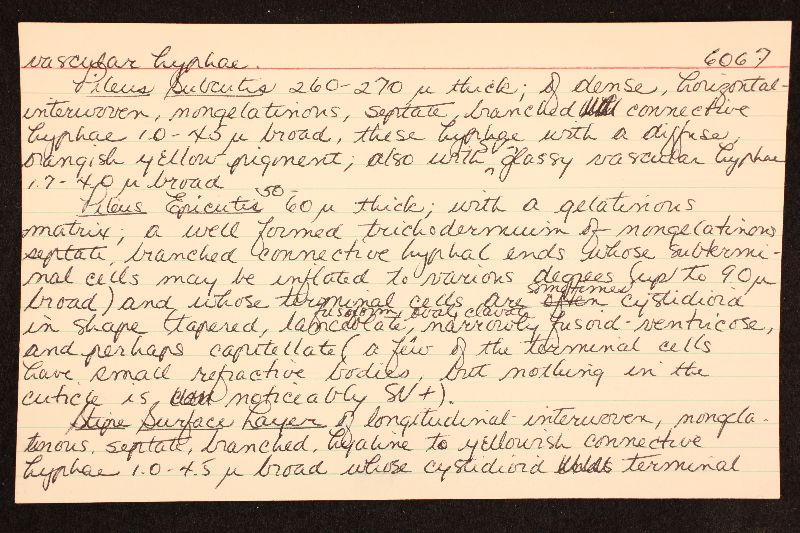 vascular hyphae. 6067
Pileus Subcutis 260-270 µ thick; of dense, horizontal-
interwoven, nongelatinous, septate, branched connective
hyphae 1.0-4.5 µ broad, these hyphae with a diffuse,
orangish yellow pigment; also with glassy vascular hyphae
1.7-4.0 µ broad
Pileus Epicutis 50-60 µ thick; with a gelatinous
matrix; a well formed trichodermium of nongelatinous
septate, branched connective hyphal ends whose subtermi-
nal cells may be inflated to various degrees (up to 90 µ
broad) and whose terminal cells are sometimes cystidioid
in shape (tapered, lanceolate, fusoform, ovate, clavate, narrowly fusoid-ventricose,
and perhaps capitellate (a few of the terminal cells
have small refractive bodies, but nothing in the
cuticle is noticeably SV+).
Stipe Surface Layer of longitudinal-interwoven, nongela-
tinous, septate, branched, hyaline to yellowish connective
hyphae 1.0-4.5 µ broad whose cystidioid terminal